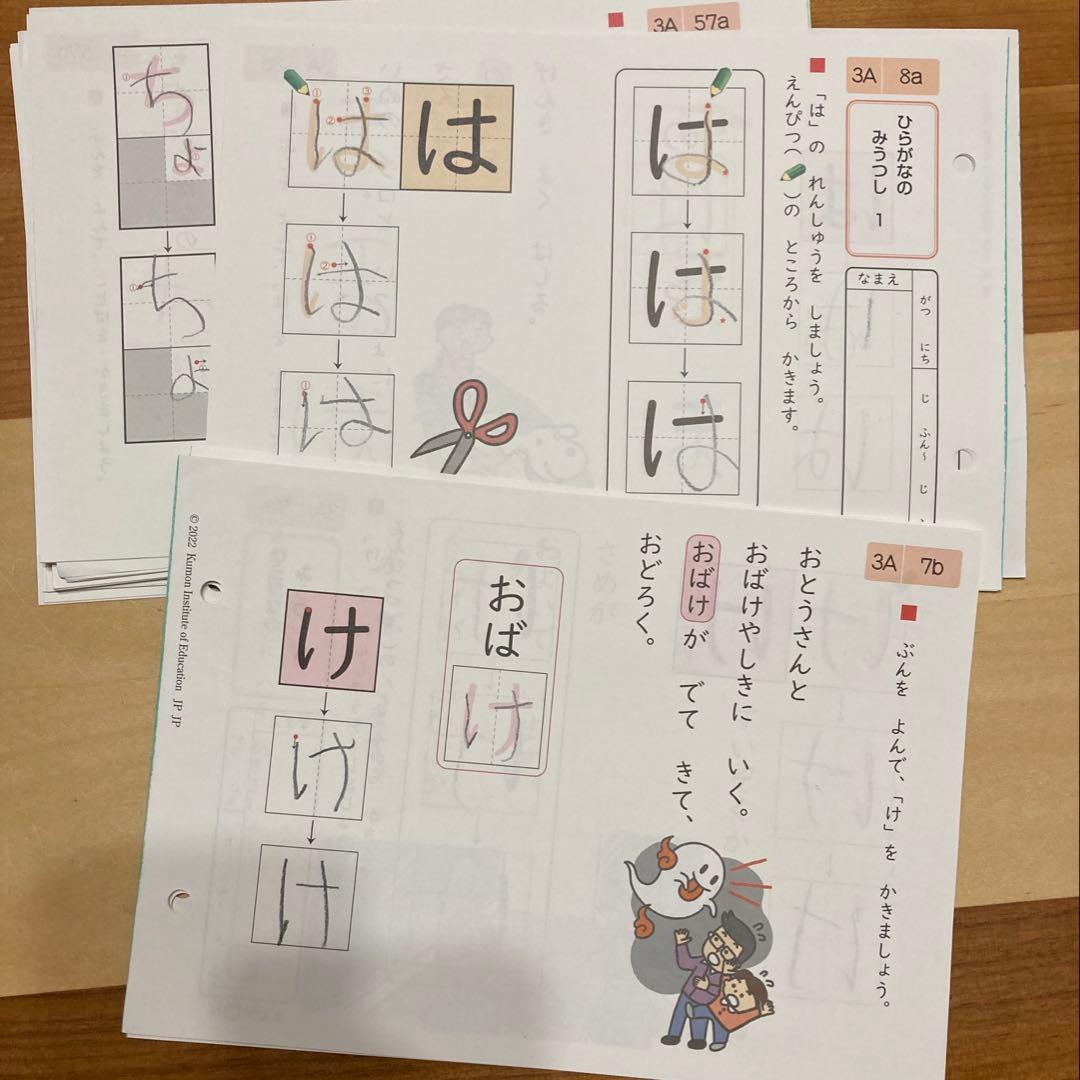 3A 57a
3A 8a
ひらがなの
みうつし 1
なまえ
がつ にち じ ふん〜 じ
■「は」の れんしゅうを しましょう。
えんぴつ( )の ところから かきます。
は
は
は
① ② ③
は は
① ②
は
①
は
①
ち
ょ
①
ち
ょ
3A 7b
■ ぶんを よんで、「け」を かきましょう。
おとうさんと
おばけやしきに いく。
おばけが でて きて、
おどろく。
おばけ
け
け
け
© 2022 Kumon Institute of Education JP JP